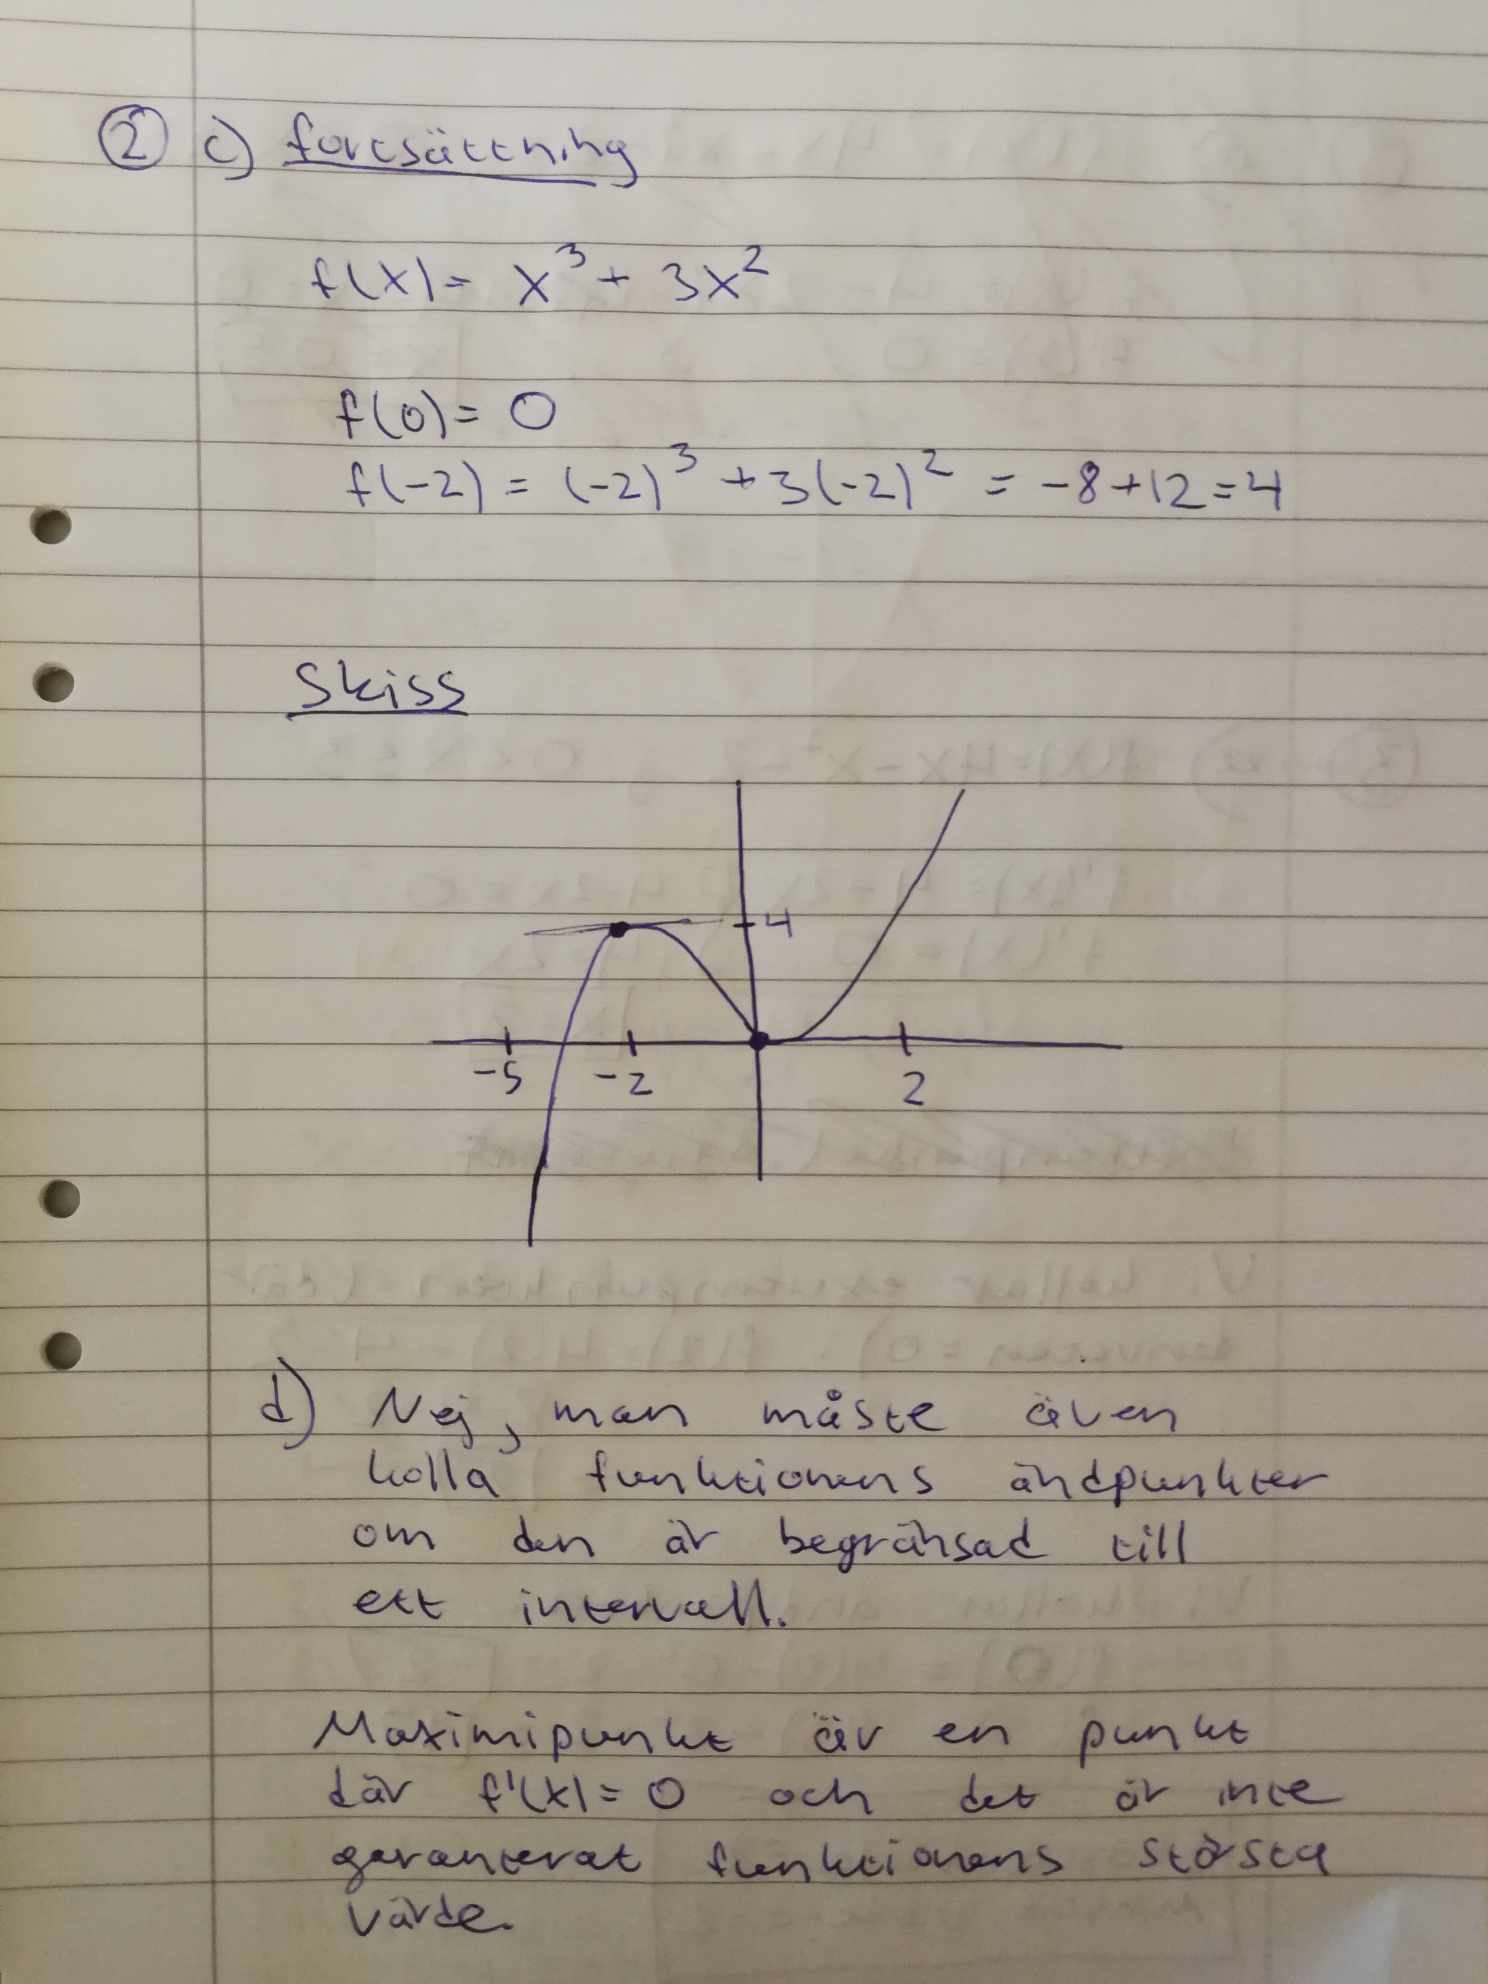 ② c) fortsättning
f(x) = x³ + 3x²
f(0) = 0
f(-2) = (-2)³ + 3(-2)² = -8+12=4
Skiss
4
-5 -2 2
d) Nej, man måste även
kolla funktionens ändpunkter
om den är begränsad till
ett intervall.
Maximipunkt är en punkt
där f'(x) = 0 och det är inte
garanterat funktionens största
värde.